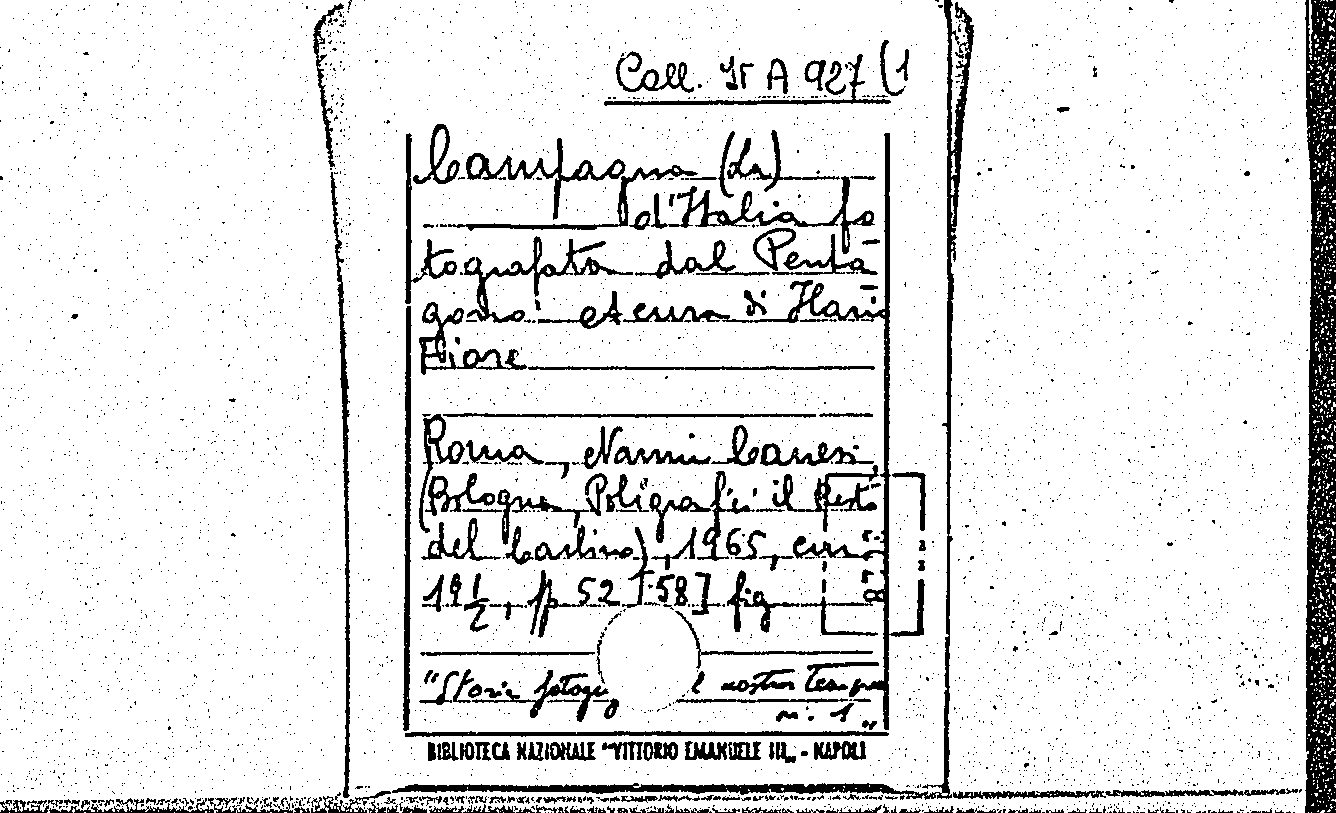 Coll. A 927 (1
Campagna (La)
d'Italia fo
tografata dal Penta
gono. A cura di Ilario
Fiore
Roma, Nanni Canesi,
(Bologna, Poligrafici il Resto
del Carlino), 1965, cm
19 1/2, pp 52 [58] fig
"Storia fotogr l nostro tempo
n. 1 "
BIBLIOTECA NAZIONALE "VITTORIO EMANUELE III„ - NAPOLI